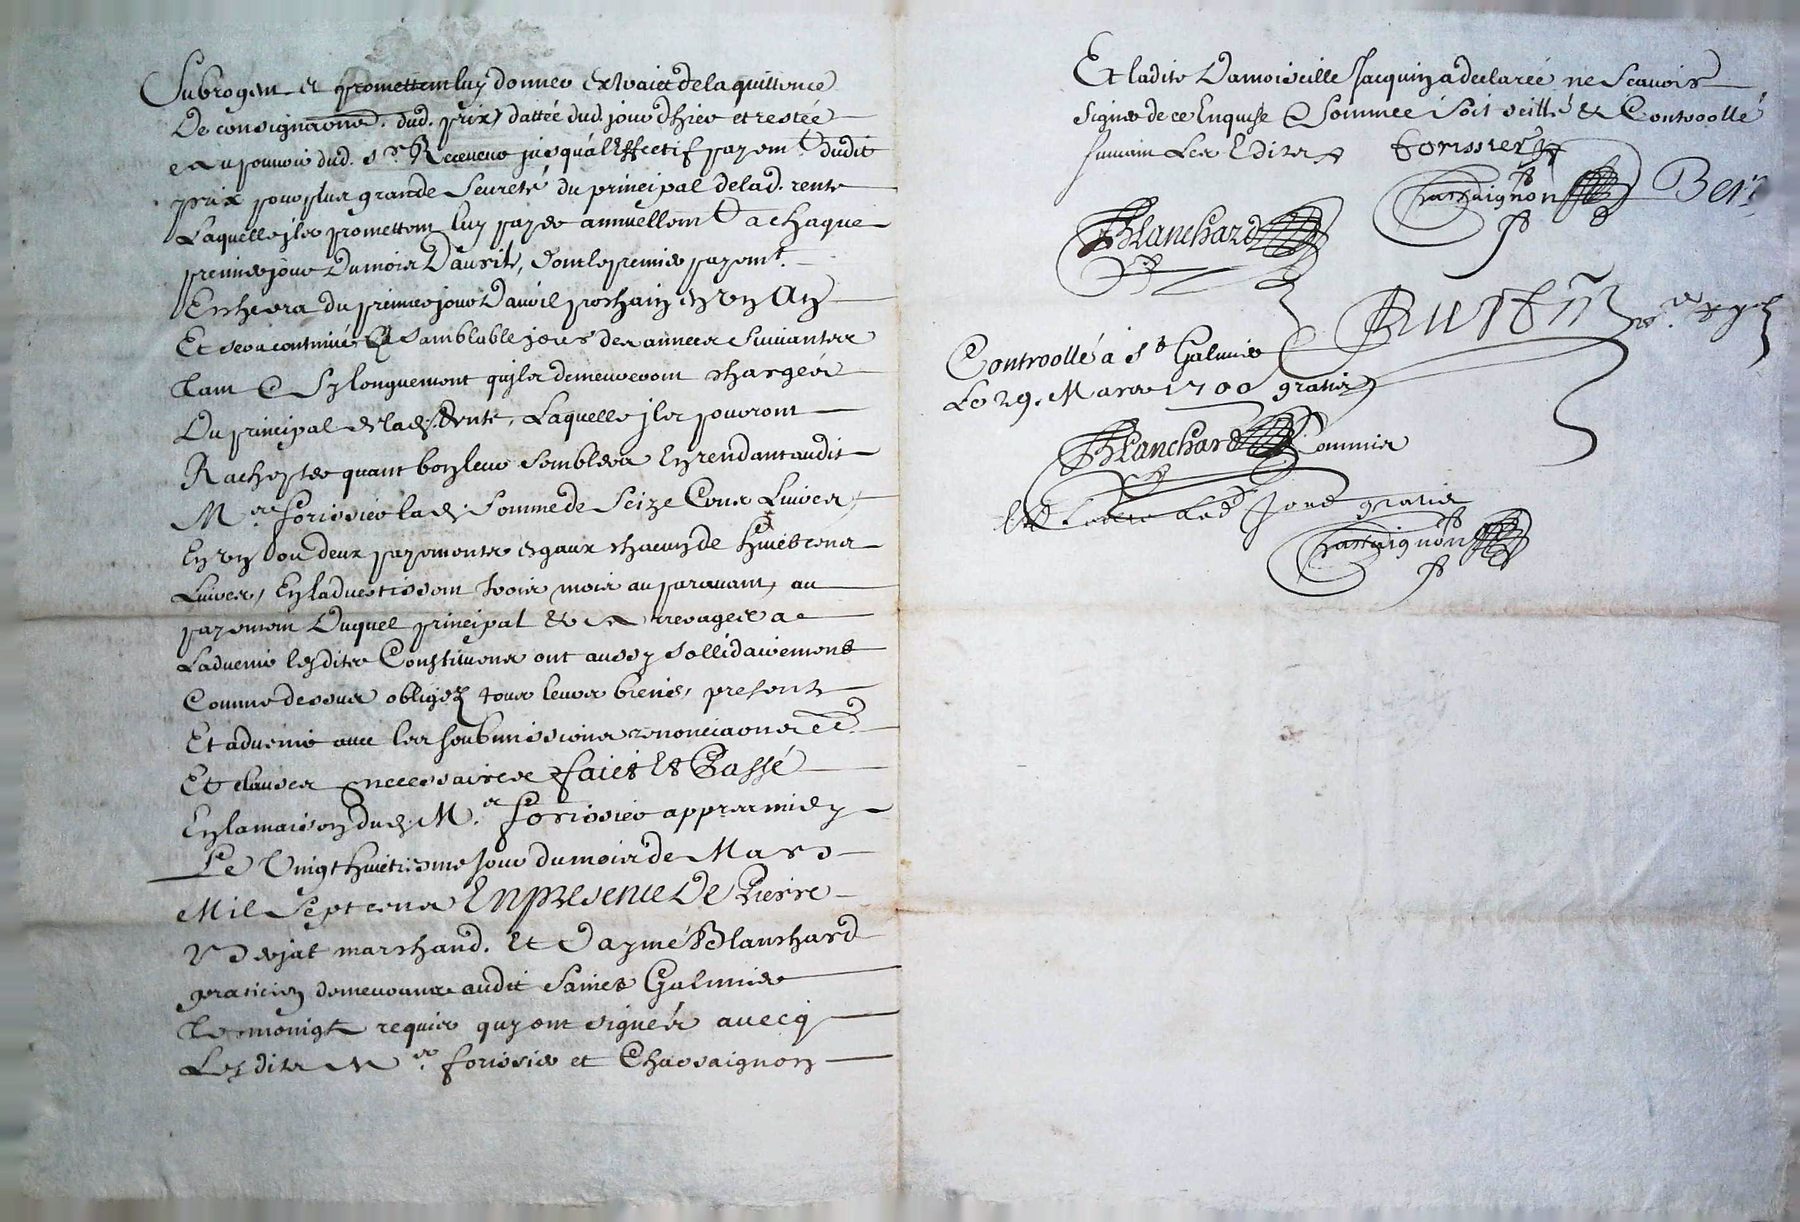 Subrogent et promettent luy donner extraict de la quittence
De consignaõns. dud. prix dattée dud. jour dhier et restée
au pouuoir dud. sr. Receueur jusquá l'Effectif payemt. dudit
prix pour plus grande seureté du principal delad. rente
Laquelle jls promettent luy payer annuellemt a chaque
premier jour Dumois Dauril, dont le premier payemt.
Escherra du premier jour Dauril prochain En vn An
Et sera continué a samblable jours des années suiuantes
tant Et sy longuement qujls demeureront chargés
Du principal de lad. Rente, Laquelle jls pouront
Rachepter quant bon leur semblera En rendant audit
Mre. forissier lad. somme de seize Cens Liures,
En vn ou deux payements esgaux chacun de huict cens
Liures, En laduertissant trois mois auparauant, au
payement Duquel principal et arrerages a
Laduenir lesdits Constituens ont aussy sollidairement
Comme dessus obligez tous leurs biens, presents
Et aduenir auec les soubmissions renonciaõns etc.
Et clauses necessaires faict Et Passé
En la maison dud. Mre. forissier appres midy
Le Vingt huictiesme Jour du mois de Mars
Mil sept cens En presence De Pierre
marchand. Et Aymé Blanchard
praticien demeurans audit Sainct Galmier
tesmoingts requis quy ont signés auecq
Lesdits Mre. forissier et Chassaignon
Et ladite Damoiseille Jacquin a declarée ne scauoir
signer de ce Enquise & sommée soit scellé & Controollé
suiuant Les Edits forissier
Chassaignon
Blanchard
Controollé a st Galmier
Le 29. Mars 1700 gratis
Blanchard Commis
Led Jour gratis
Chassaignon